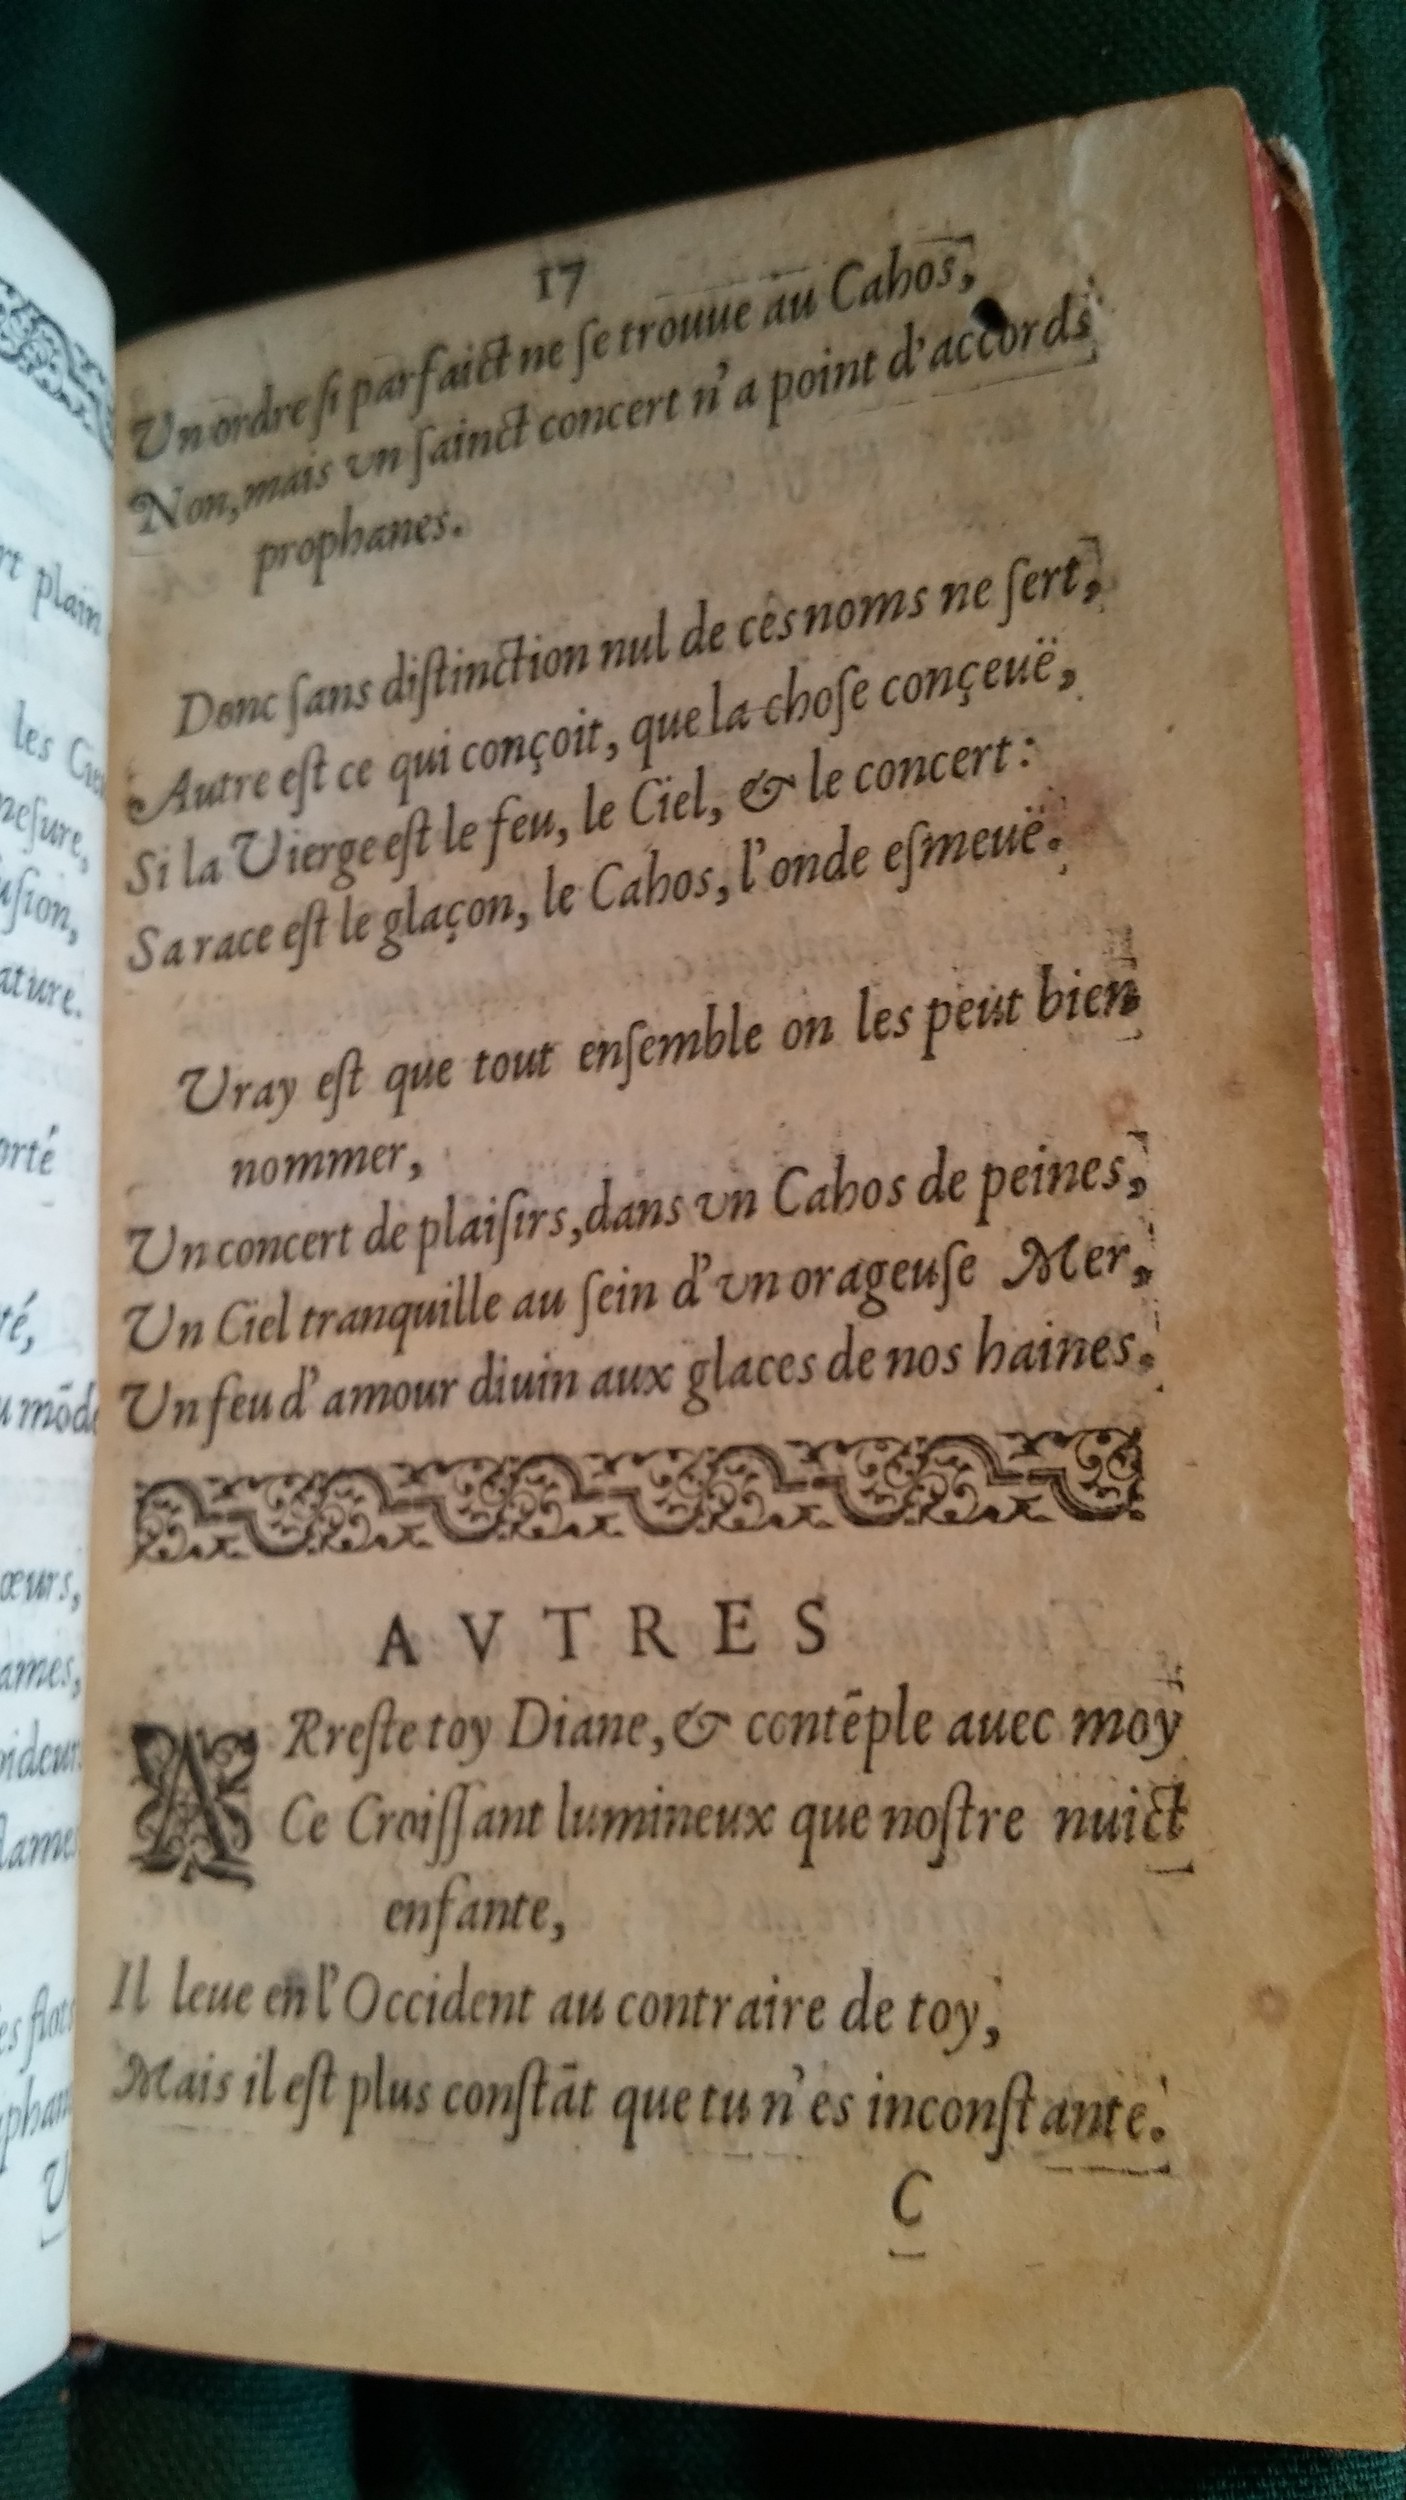 rt plain
les Ciel
mesure,
usion,
ature.
orté
té,
u mōde
œurs,
ames,
oideur
lames
es flots
phan
V
17
Vn ordre si parfaict ne se trouue au Cahos,
Non, mais vn sainct concert n'a point d'accords
prophanes.
Donc sans distinction nul de ces noms ne sert,
Autre est ce qui conçoit, que la chose conçeuë,
Si la Vierge est le feu, le Ciel, & le concert:
Sa race est le glaçon, le Cahos, l'onde esmeuë.
Vray est que tout ensemble on les peut bien
nommer,
Vn concert de plaisirs, dans vn Cahos de peines,
Vn Ciel tranquille au sein d'vn orageuse Mer,
Vn feu d'amour diuin aux glaces de nos haines.
AVTRES
ARreste toy Diane, & contēple auec moy
Ce Croissant lumineux que nostre nuict
enfante,
Il leue en l'Occident au contraire de toy,
Mais il est plus constāt que tu n'es inconstante.
C